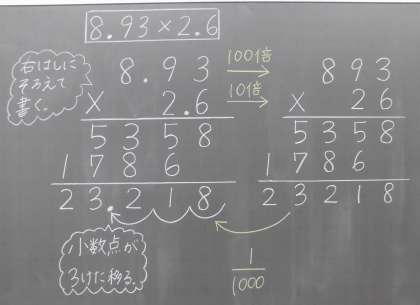 8.93×2.6
右はしに
そろえて
書く。
8.93
× 2.6
5358
1786
23.218
100倍
10倍
893
× 26
5358
1786
23218
小数点が
3けた移る。
1
1000